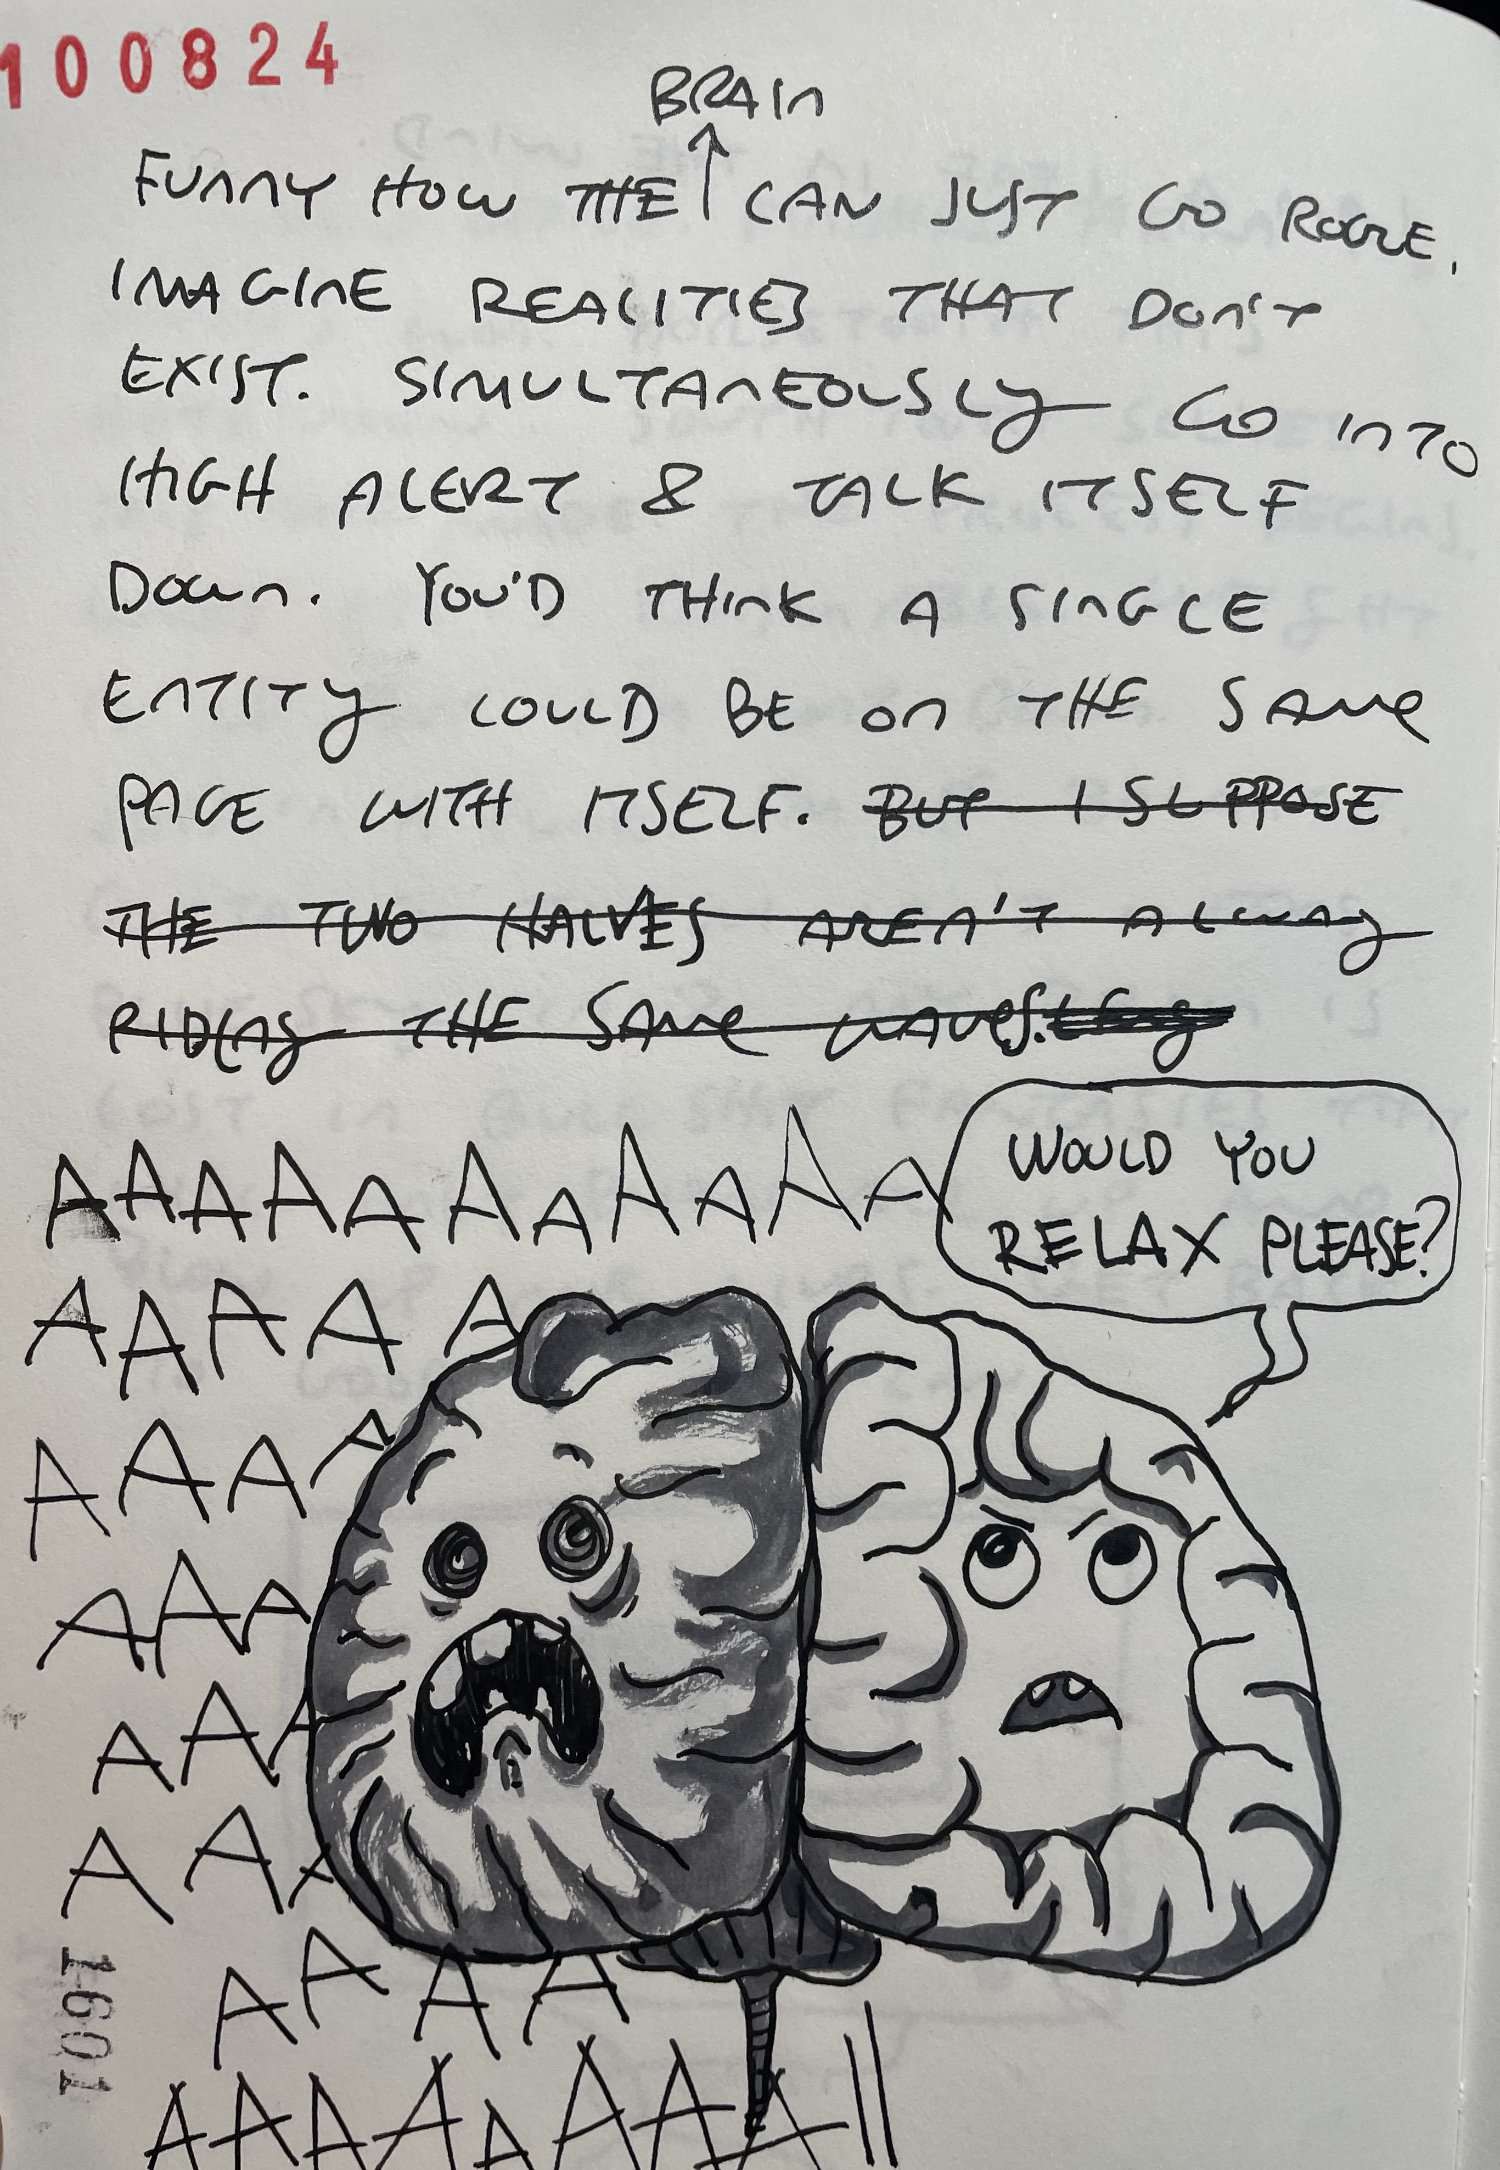 100824
BRAIN
FUNNY HOW THE CAN JUST GO ROGUE.
IMAGINE REALITIES THAT DON'T
EXIST. SIMULTANEOUSLY GO INTO
HIGH ALERT & TALK ITSELF
DOWN. YOU'D THINK A SINGLE
ENTITY COULD BE ON THE SAME
PAGE WITH ITSELF. BUT I SUPPOSE
THE TWO HALVES AREN'T ALWAY
RIDING THE SAME WAVES.
WOULD YOU
RELAX PLEASE?
AAAAAAAAAAA
AAAAA
AAAA
AAA
AAA
AAA
AAAA
AAAAAAAA||
1601